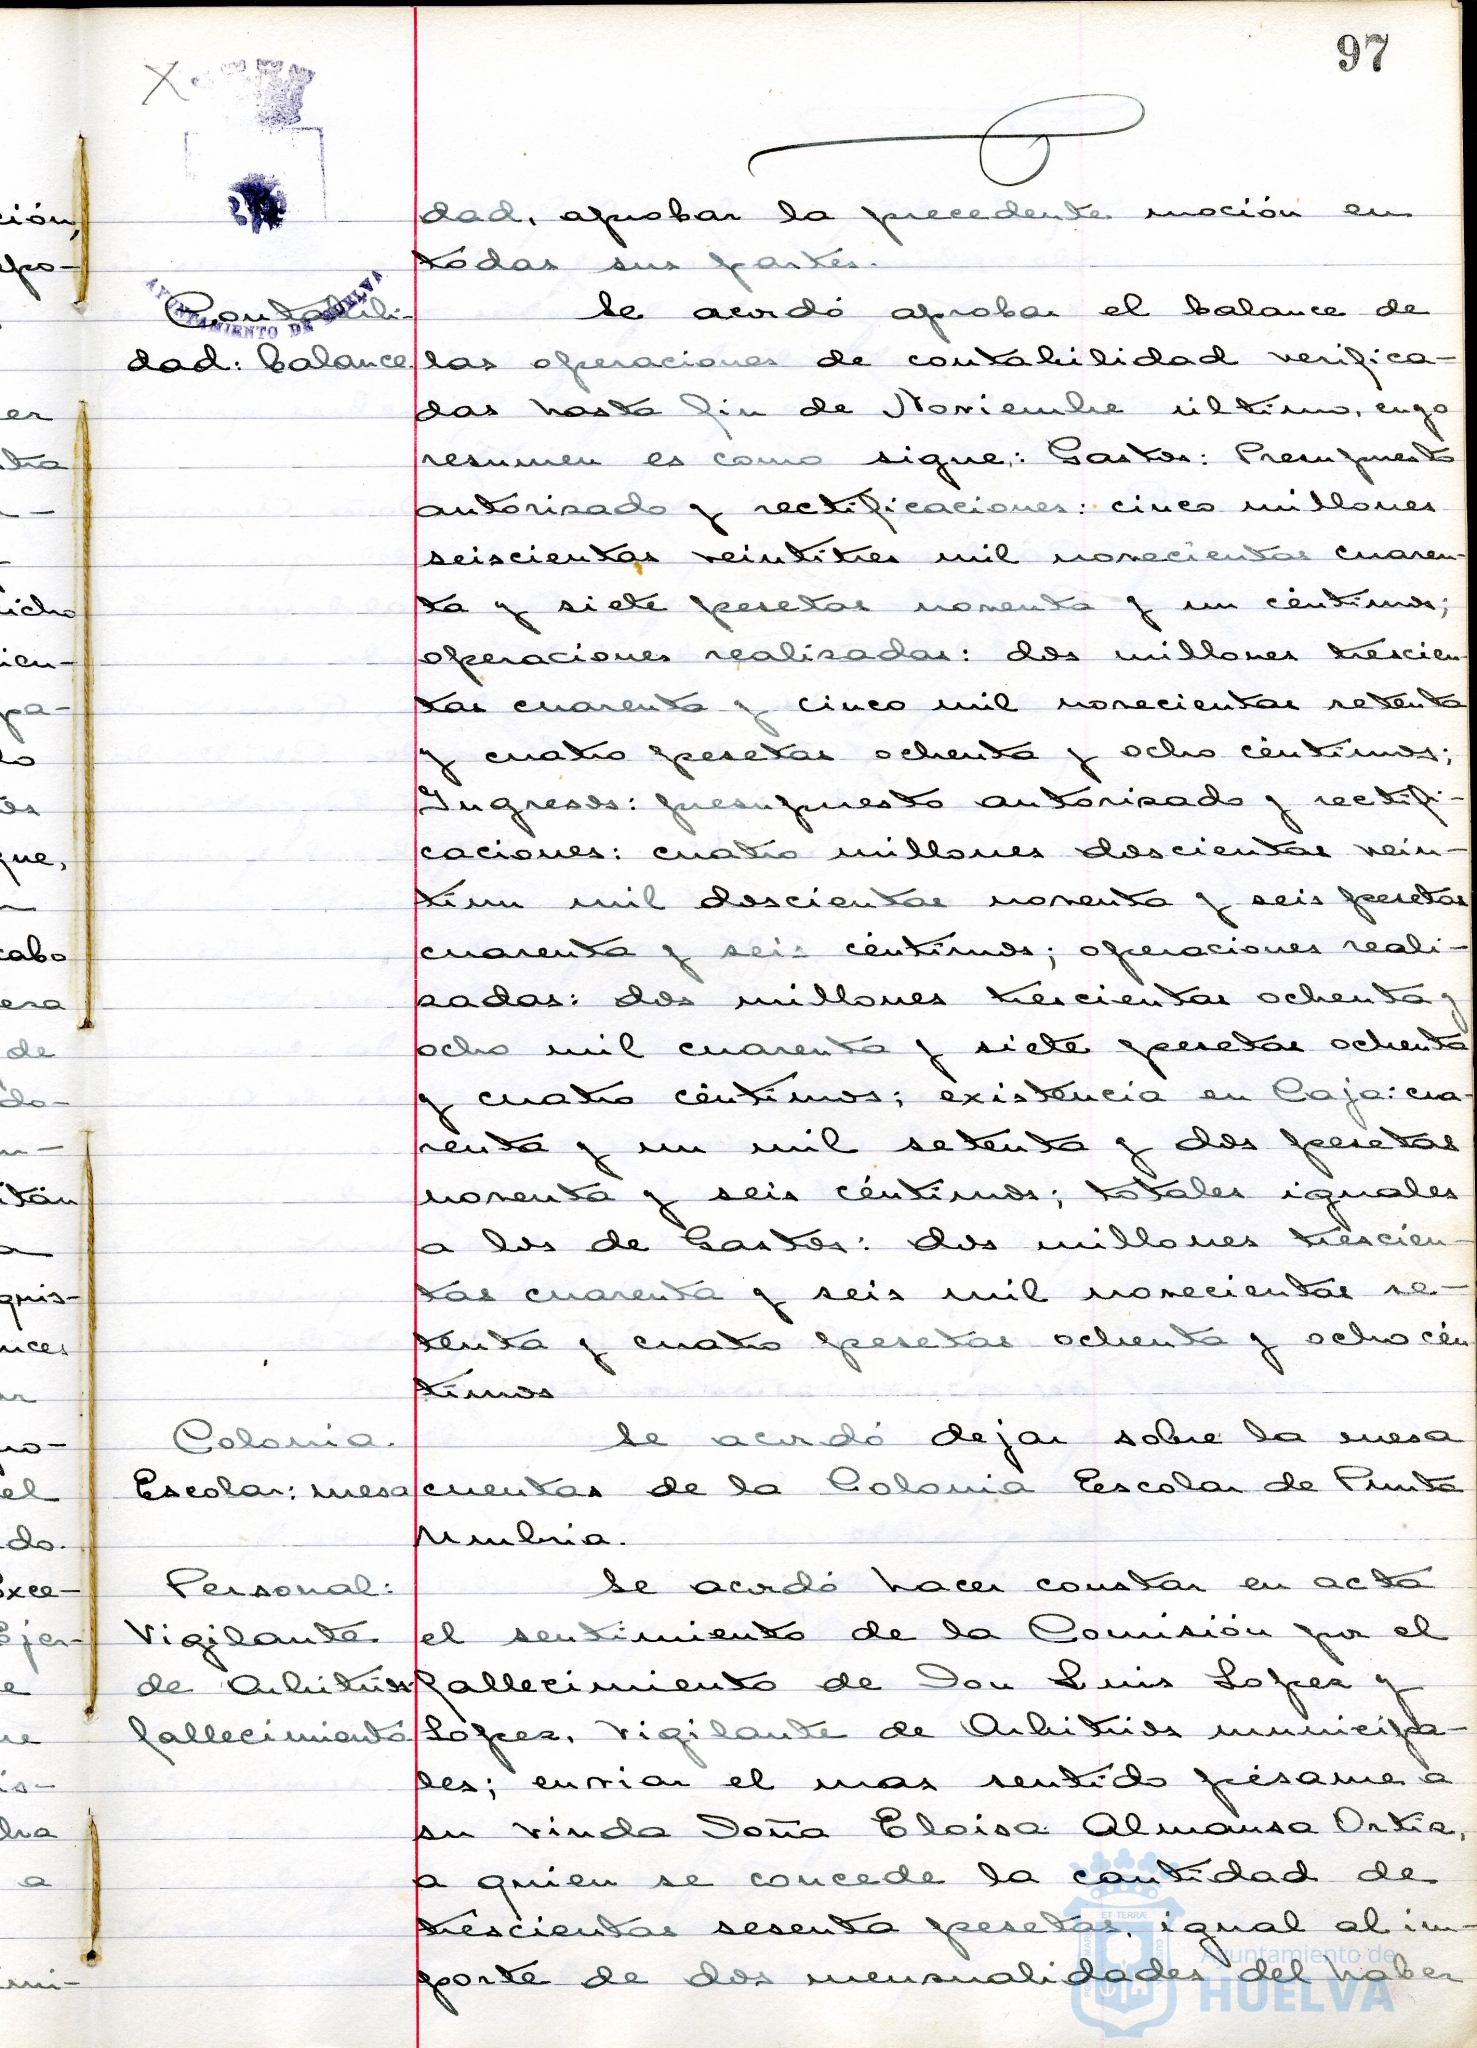 97
AYUNTAMIENTO DE HUELVA
dad, aprobar la precedente moción en
todas sus partes.
Contabili-
dad: balance.
Se acordó aprobar el balance de
las operaciones de contabilidad verifica-
das hasta fin de Noviembre último, cuyo
resumen es como sigue,: Gastos: Presupuesto
autorizado y rectificaciones: cinco millones
seiscientas veintitres mil novecientas cuaren-
ta y siete pesetas noventa y un céntimos;
operaciones realizadas: dos millones trescien-
tas cuarenta y cinco mil novecientas setenta
y cuatro pesetas ochenta y ocho céntimos;
Ingresos: presupuesto autorizado y rectifi-
caciones: cuatro millones doscientas vein-
tiun mil doscientas noventa y seis pesetas
cuarenta y seis céntimos; operaciones reali-
zadas: dos millones trescientas ochenta y
ocho mil cuarenta y siete pesetas ochenta
y cuatro céntimos; existencia en Caja: cua-
renta y un mil setenta y dos pesetas
noventa y seis céntimos; totales iguales
a los de Gastos: dos millones trescien-
tas cuarenta y seis mil novecientas se-
tenta y cuatro pesetas ochenta y ocho cén
timos
Colonia.
Escolar: mesa
Se acordó dejar sobre la mesa
cuentas de la Colonia Escolar de Punta
Umbria.
Personal:
Vigilante
de Arbitrios
fallecimiento
Se acordó hacer constar en acta
el sentimiento de la Comisión por el
fallecimiento de Don Luis Lopez y
López, Vigilante de Arbitrios municipa-
les; enviar el mas sentido pésame a
su viuda Doña Eloisa Almansa Ortiz,
a quien se concede la cantidad de
trescientas sesenta pesetas, igual al im-
porte de dos mensualidades del haber
Ayuntamiento de
HUELVA